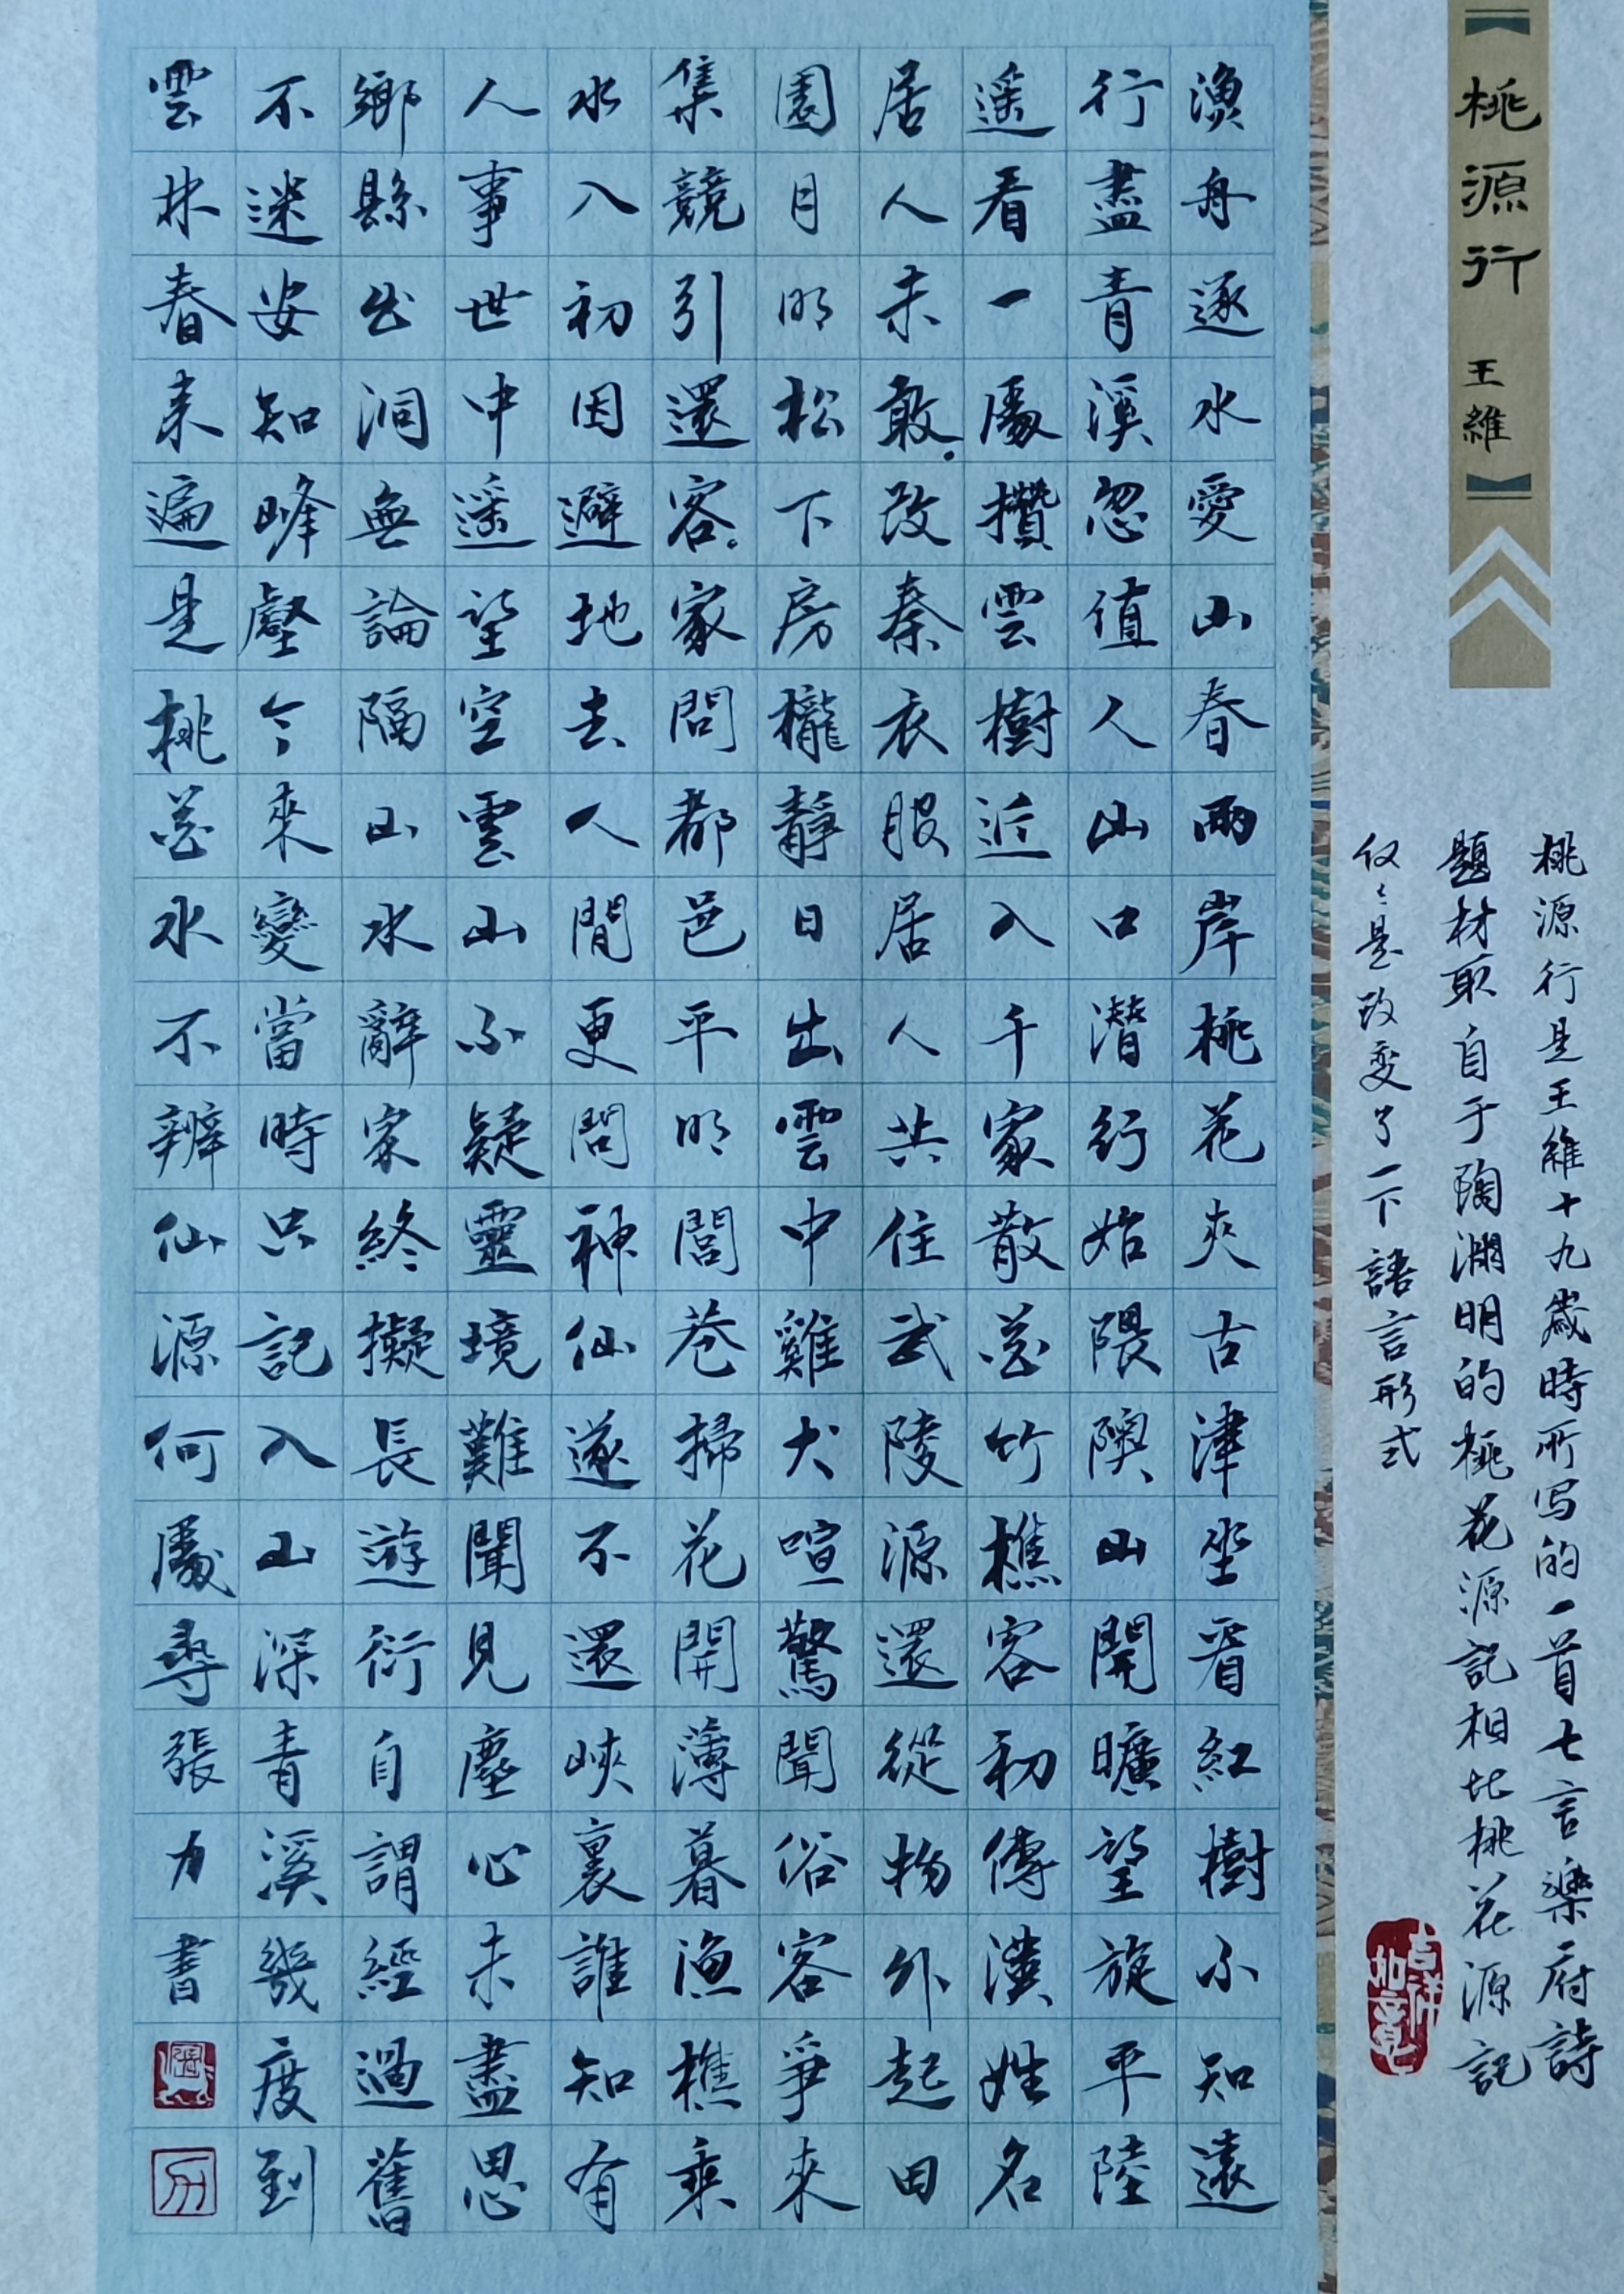 桃源行 王維
桃源行是王維十九歲時所写的一首七言樂府詩
題材取自于陶淵明的桃花源記相比桃花源記
仅々是改变了一下語言形式
吉祥如意
漁舟逐水愛山春兩岸桃花夾古津坐看紅樹不知遠
行盡青溪忽值人山口潛行始隈隩山開曠望旋平陸
遥看一處攢雲樹近入千家散花竹樵客初傳漢姓名
居人未敢改秦衣服居人共住武陵源還從物外起田
園月明松下房櫳靜日出雲中雞犬喧驚聞俗客爭來
集競引還客家問都邑平明閭巷掃花開薄暮漁樵乘
水入初因避地去人間更問神仙遂不還峽裏誰知有
人事世中遥望空雲山不疑靈境難聞見塵心未盡思
鄉縣出洞無論隔山水辭家終擬長遊衍自謂經過舊
不迷安知峰壑今來變當時只記入山深青溪幾度到
雲林春来遍是桃花水不辨仙源何處尋張力書